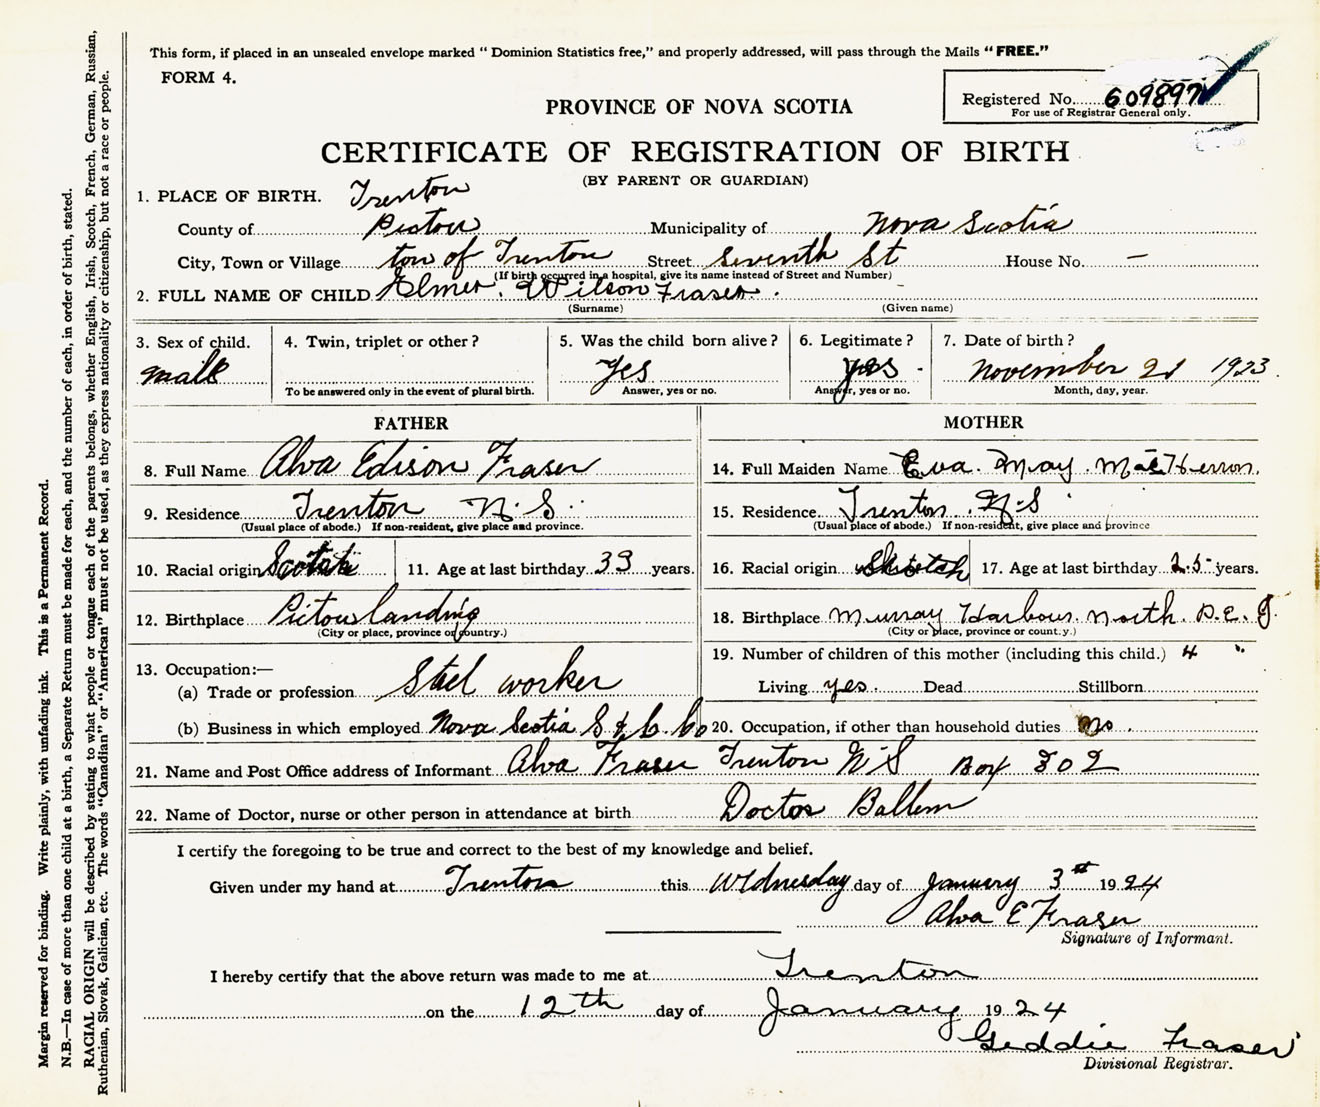 This form, if placed in an unsealed envelope marked "Dominion Statistics free," and properly addressed, will pass through the Mails "FREE."
FORM 4.
Registered No. 609897
For use of Registrar General only.
PROVINCE OF NOVA SCOTIA
CERTIFICATE OF REGISTRATION OF BIRTH
(BY PARENT OR GUARDIAN)
1. PLACE OF BIRTH. Trenton
County of Pictou Municipality of Nova Scotia
City, Town or Village ton of Trenton Street Seventh St House No. —
(If birth occurred in a hospital, give its name instead of Street and Number)
2. FULL NAME OF CHILD Elmer Wilson Fraser
(Surname) (Given name)
3. Sex of child. 4. Twin, triplet or other? 5. Was the child born alive? 6. Legitimate? 7. Date of birth?
male Yes yes November 21 1923
To be answered only in the event of plural birth. Answer, yes or no. Answer, yes or no. Month, day, year.
FATHER MOTHER
8. Full Name Alva Edison Fraser 14. Full Maiden Name Eva May
9. Residence Trenton N.S. 15. Residence Trenton N.S
(Usual place of abode.) If non-resident, give place and province. (Usual place of abode.) If non-resident, give place and province
10. Racial origin 11. Age at last birthday 33 years. 16. Racial origin 17. Age at last birthday 25 years.
12. Birthplace Pictou landing 18. Birthplace Murray Harbour North P.E.I.
(City or place, province or country.) (City or place, province or count.y.)
13. Occupation:— 19. Number of children of this mother (including this child.) 4
(a) Trade or profession Steel worker Living yes. Dead Stillborn
(b) Business in which employed Nova Scotia S & C. Co 20. Occupation, if other than household duties no.
21. Name and Post Office address of Informant Alva Fraser Trenton N S Box 302
22. Name of Doctor, nurse or other person in attendance at birth Doctor Ballem
I certify the foregoing to be true and correct to the best of my knowledge and belief.
Given under my hand at Trenton this Wednesday day of January 3rd 1924
Alva E Fraser
Signature of Informant.
I hereby certify that the above return was made to me at Trenton
on the 12th day of January 1924
Geddie Fraser
Divisional Registrar.
Margin reserved for binding. Write plainly, with unfading ink. This is a Permanent Record.
N.B.—In case of more than one child at a birth, a Separate Return must be made for each, and the number of each, in order of birth, stated.
RACIAL ORIGIN will be described by stating to what people or tongue each of the parents belongs, whether English, Irish, Scotch, French, German, Russian,
Ruthenian, Slovak, Galician, etc. The words "Canadian" or "American" must not be used, as they express nationality or citizenship, but not a race or people.